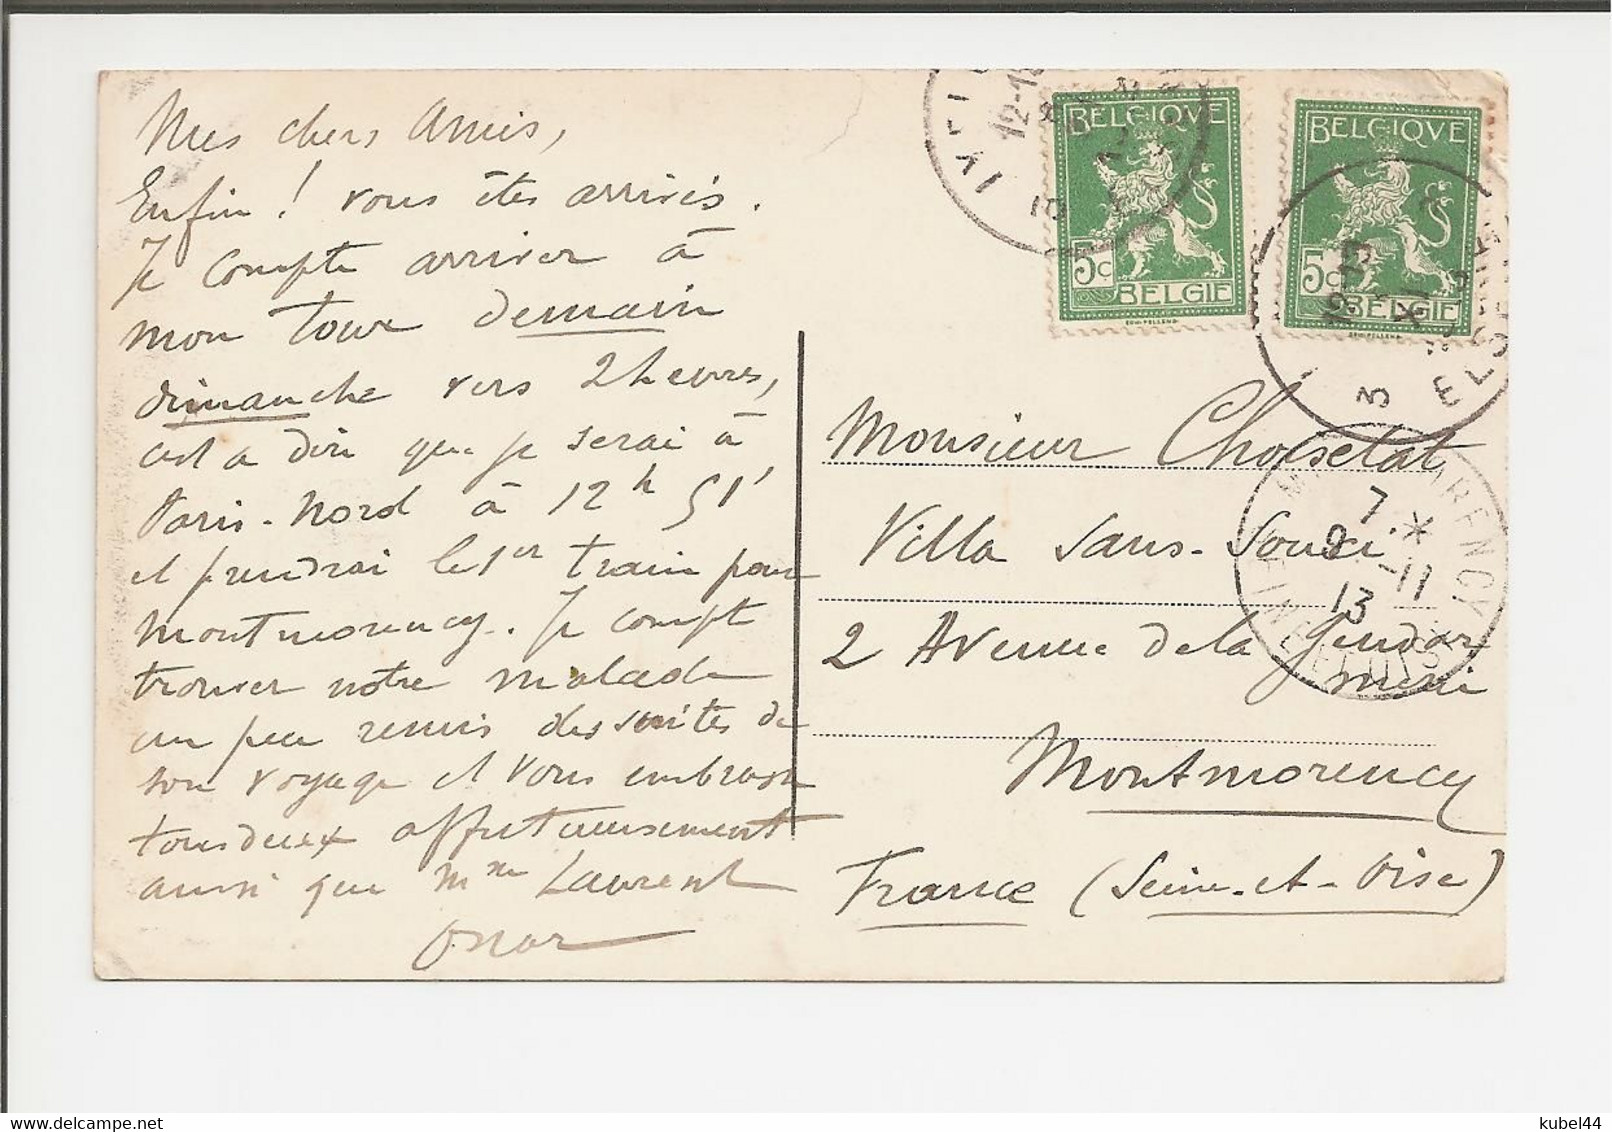 Mes chers Amis,
Enfin ! vous êtes arrivés.
Je compte arriver à
mon tour demain
dimanche vers 2 heures,
cest a dire que je serai à
Paris-Nord à 12h 51'
et prendrai le 1er train pour
Montmorency. Je compte
trouver notre malade
un peu remis des suites de
son voyage et vous embrasse
tous deux affectueusement
ainsi que Mme Laurent
Oscar
BELGIQVE
5c
BELGIE
BELGIQVE
5c
BELGIE
12-1
1913
XI
3
MONTMORENCY
7
9-11
13
SEINE ET OISE
Monsieur Choiselat
Villa Sans-Souci
2 Avenue de la Gendar
merie
Montmorency
France (Seine-et-Oise)
kubel44